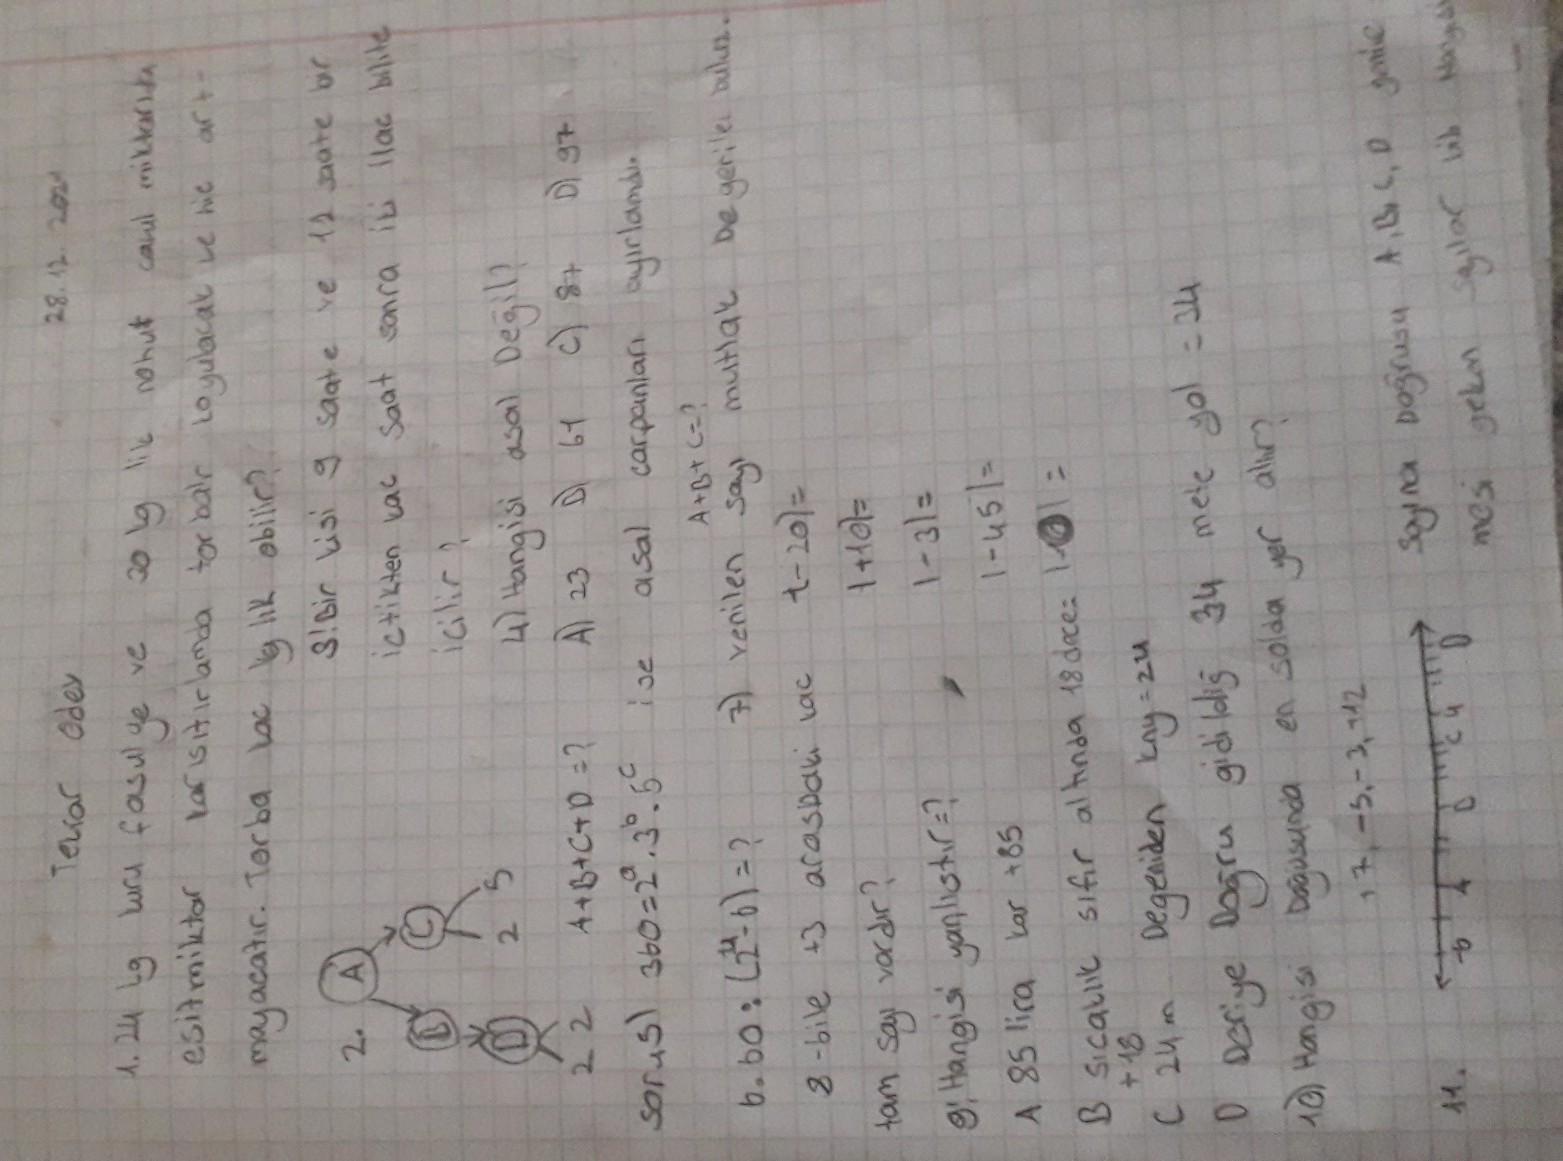 Tekrar ödev 28.12.2021
1. 24 kg kuru fasulye ve 30 kg lik nohut miktarları
esitmiktar karıstırlamda torbalr koyulacak ve hic art-
mayacatır. Torba kac kg lik obilir?
2. A B C D 2 5 2 2
A+B+C+D=?
3) Bir kisi 9 saate ve 12 saate bir
ictikten kac saat sonra iki ilac
icilir?
4) Hangisi asal Değil?
A) 23 D) 61 C) 87 D) 97
soru5) 360=2ᵃ.3ᵇ.5ᶜ ise asal carpanları ayırlamdı.
A+B+C=?
6. 60:(2⁴-6)=?
7) verilen sayı mutlak Degerile bulun.
|-20|=
|+10|=
|-3|=
|-45|=
8 -6ile +3 arasdaki kac
tam say vardır?
9) Hangisi yanlıstır=?
A 85 lira kar +85
B sıcaklık sıfır altında 18drece=
+18
C 24m Degeniden kny=24
D Deriye Doğru gidildiğ 34 mete yol =34
10) Hangisi Doğusunda en solda yer alır?
+7, -5, -3, +12
11. -6 A 0 C 4 D
Sayna Doğrusu A, B, C, D
mesi gekan sayılar